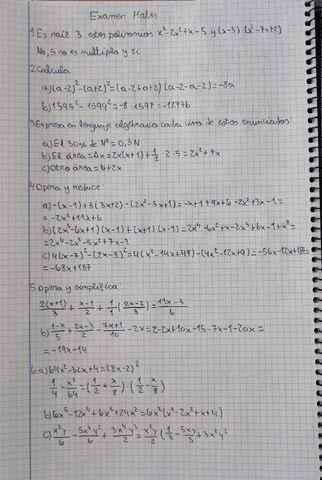 Examen Mates
1 Es raíz 3 estos polinomios: x³-2x²+x-5 y (x-3)·(x²-7x+2)
No, 5 no es multiplo y si
2 Calcula
a) (a-2)²-(a+2)²=(a-2+a+2)·(a-2-a-2)=-8a
b) 1595²-1599²=-8·1597=-12776
3 Expresa en lenguaje algebraico cada uno de estos enunciados:
a) El 30% de Nº=0,3N
b) El área=Ax=2x(x+1)+1/2·2·5=2x²+7x
c) Otro área=b+2x
4 Opera y reduce:
a) -(x-1)+3(3x+2)-(2x²-3x+1)=-x+1+9x+6-2x²+3x-1=
=-2x²+11x+6
b) (2x³-6x+1)(x-1)+(x+1)(x-1)=2x⁴-6x²+x-2x³+6x-1+x²=
=2x⁴-2x³-5x²+7x-2
c) 4(x-7)²-(2x-3)²=4(x²-14x+49)-(4x²-12x+9)=-56x-12x+187=
=-68x+187
5 Opera y simplifica:
2(x+1)/3+x-1/2+1/1(2x-2/3)=11x-3/6
b) 1-x/5+2x-3/2-7x+1/10-2x=2-2x+10x-15-7x-1-20x=
=-19x-14
6a) 64x²-32x+4=(8x-2)²
1/4-x²/64=(1/2+x/8)·(1/2-x/8)
b) 6x⁵-12x⁴+6x³+24x²=6x²(x³-2x²+x+4)